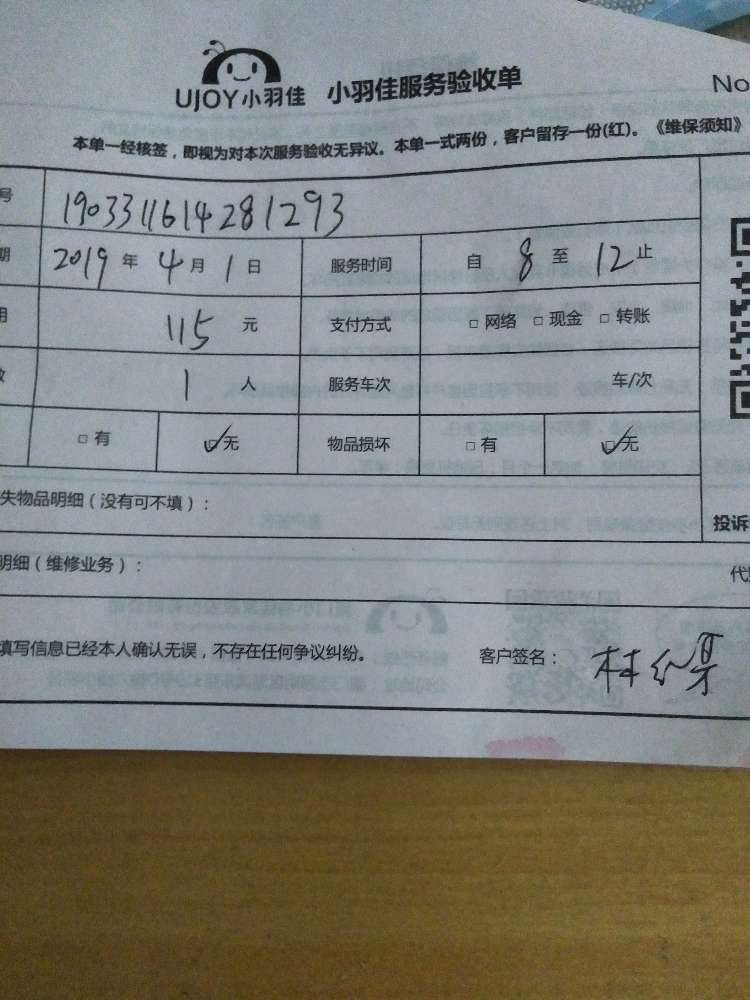 UJOY小羽佳 小羽佳服务验收单 No
本单一经核签，即视为对本次服务验收无异议。本单一式两份，客户留存一份(红)。《维保须知》
号 1903311614281293
期 2019 年 4 月 1 日 服务时间 自 8 至 12 止
用 115 元 支付方式 □ 网络 □ 现金 □ 转账
数 1 人 服务车次 车/次
□ 有 ☑无 物品损坏 □ 有 ☑无
失物品明细（没有可不填）：
投诉
明细（维修业务）：
代
填写信息已经本人确认无误，不存在任何争议纠纷。 客户签名：林